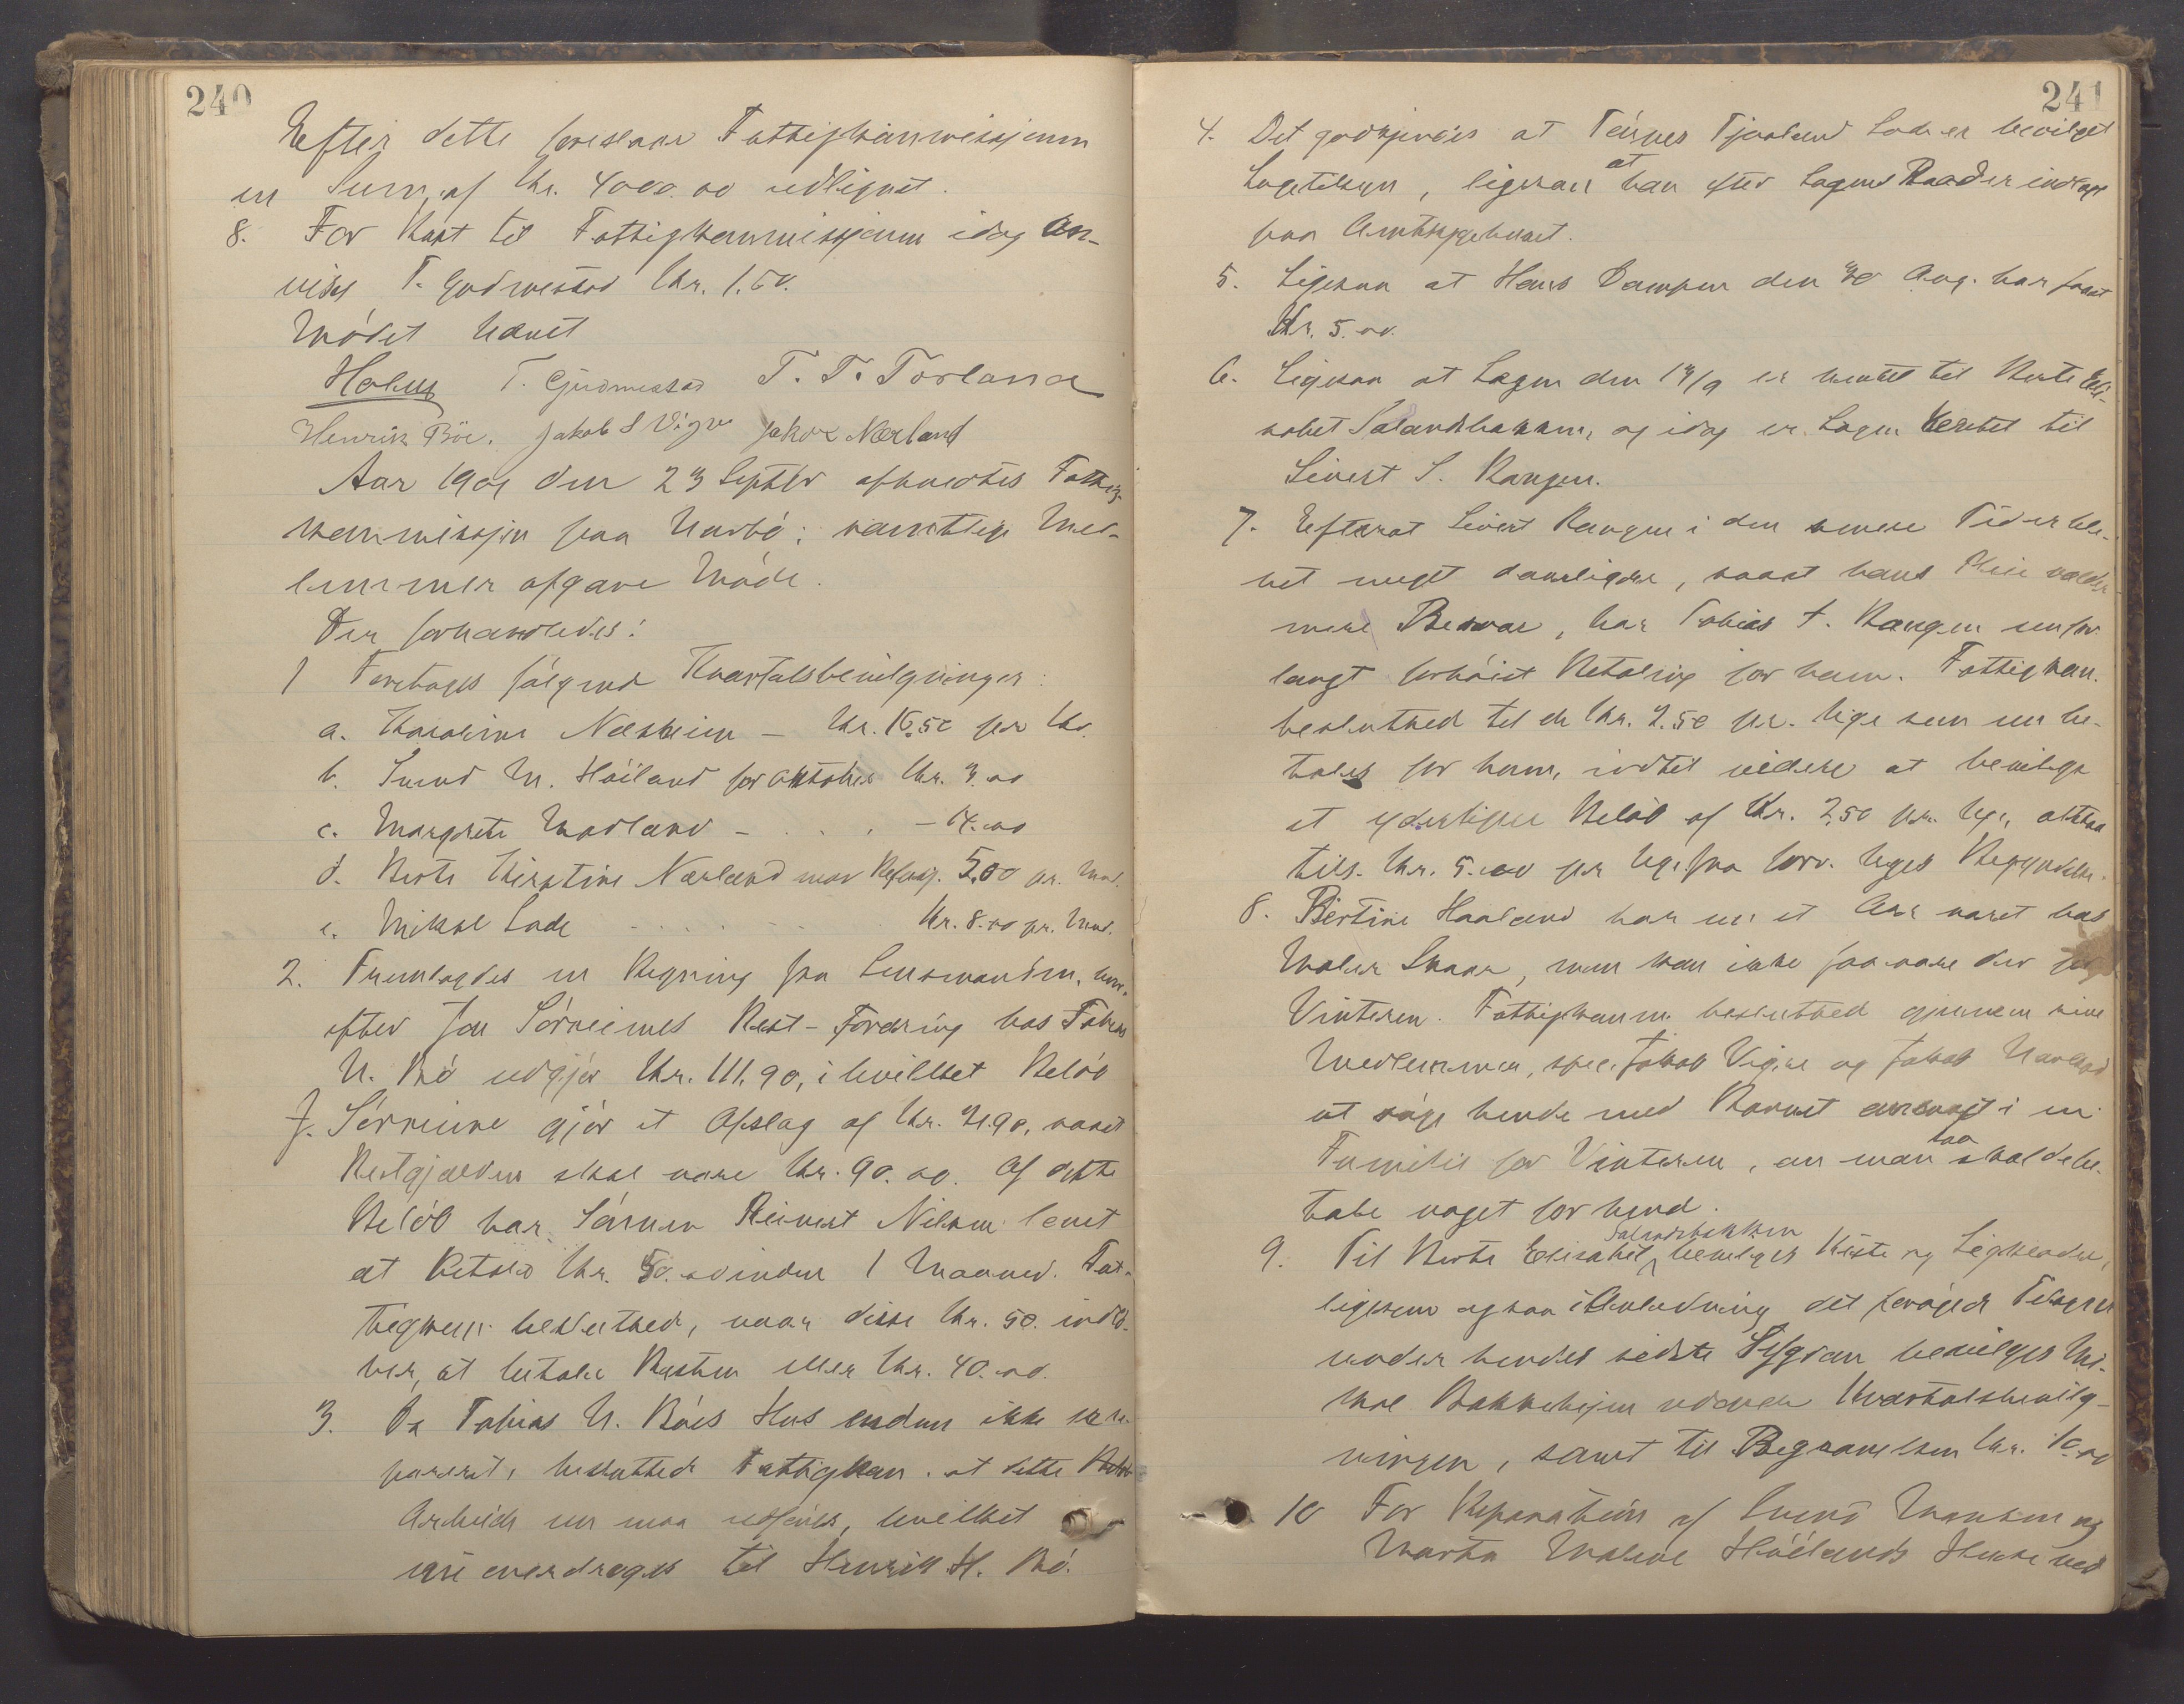 240
Efter dette foreslaar Fattigkommissjonen
en Sum af Kr. 4000.00 udlignet.
8. For Kost til Fattigkommissjonen idag an-
vises T. Gudmestad Kr. 1.60.
Mödet hævet
Holms T. Gudmestad T. T. Torland
Henrik Böe. Jakob S Vigre Jakob Nærland
Aar 1901 den 23 Septbr afholdtes Fattig-
kommissjon paa Nærbö; samtlige Med-
lemmer afgave Möde.
Der forhandledes:
1 Foretoges fölgend Kvartalsbevilgninger:
a. Karoline Næsheim - Kr. 16.50 per Kv.
b. Svend M. Höiland for Oktober Kr. 3.00
c. Margrete Madland - . . . - 14.00
d. Berte Kirstine Nærland mod Refusj. 5.00 pr. Md.
e. Mikal Lode . . . . . Kr. 8.00 pr. Mnd.
2. Fremlagdes en Regning fra Lensmanden, hvor-
efter Jon Sörneimes Rest-Fordring hos Tobias
N. Bö udgjör Kr. 111.90, i hvilket Belöb
J. Sörneime gjör et Afslag af Kr. 21.90, saaat
Restgjælden skal være Kr. 90.00. Af dette
Belöb har Sönnen Reinert Nilsen lovet
at betale Kr. 50.00 inden 1 Maaned. Fat-
tigkom. besluttede, naar disse Kr. 50. indlö-
ber, at betale Resten eller Kr. 40.00.
3. Da Tobias N. Böes Hus endnu ikke er re-
pareret, besluttede Fattigkom. at dette
Arbeide nu maa udföres, hvilket
overdrages til Henrik H. Bö.
241
4. Det godkjendes at Tönnes Tjaaland Lode er bevilget
Lægetilsyn, ligesaa at han efter Lægens Raad er indlagt
paa Amtssygehuset.
5. Ligesaa at Hans Dampen den 30 Aug. har faaet
Kr. 5.00.
6. Ligesaa at Lægen den 14/9 er hentet til Berte Eli-
sabet Salandsbakken, og idag er Lægen hentet til
Sivert S. Kangen.
7. Efterat Sivert Kangen i den senere Tid er ble-
vet meget daarligere, saaat hans Pleie volder
mere Besvær, har Tobias T. Kangen nu for-
langt forhöiet Betaling for ham. Fattigkom.
besluttede til de Kr. 2.50 pr. Uge som nu be-
tales for ham, indtil videre at bevilge
et yderligere Belöb af Kr. 2,50 pr. Uge, altsaa
tils. Kr. 5.00 per Uge fra forr. Uges Begyndelse.
8. Bertine Haaland har nu et Aar været hos
Maler Skaar, men kan ikke faa være der
Vinteren. Fattigkomm. besluttede gjennem sine
Medlemmer, spec. Jakob Vigre og Jakob Nærland
at söge hende med Barnet anbragt i en
Familie for Vinteren, om man saa skulde be-
tale noget for hend.
9. Til Berte Elisabet Salandsbakken bevilges Kiste og Ligklæder,
ligesom ogsaa i Anledning det forögede Tilsyn
under hendes sidste Sygdom bevilges Mi-
kal Bakkehejen udover Kvartalsbevilg-
ningen, samt til Begravelsen Kr. 10.00
10 For Reparation af Svend Monsen og
Marta Malene Höilands Huse ved